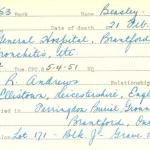 53 Rank Name Beasley
Date of death 21 Feb.
General Hospital, Brantford
Bronchitis, etc
5-4-51
R. Andrews Relationship
Ellistown, Leicestershire, Engl
Farringdon Burial Ground
Brantford, Ont
Lot 171 - Blk J - Grave